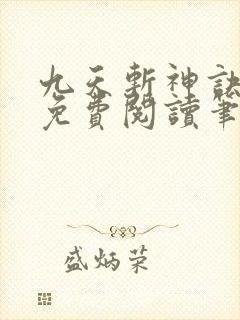 九天斬神訣
免費閱讀筆
盛炳荣